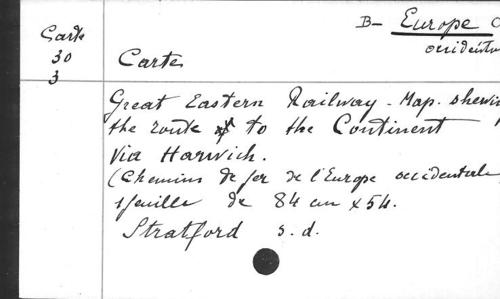 B- Europe
Carte
30
3
Carte
Great Eastern Railway - Map. shewin
the route to the Continent
Via Harwich.
(Chemins de fer de l'Europe occidentale,
1 feuille de 84 cm x 54.
Stratford s. d.